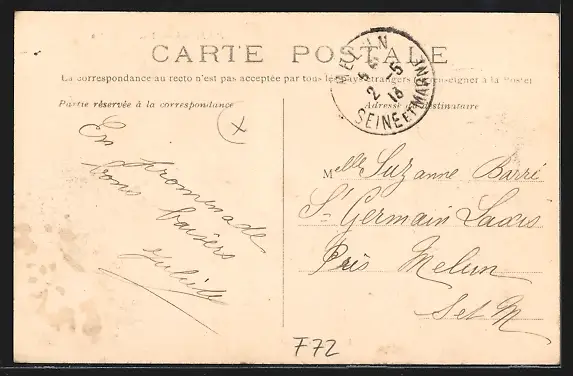 CARTE POSTALE
La correspondance au recto n'est pas acceptée par tous les pays étrangers (se renseigner à la Poste)
Partie réservée à la correspondance
Adresse du destinataire
MELUN
2 - 5
13
SEINE ET MARNE
En promenade
bons baisers
Juliette
Melle Suzanne Barré
St Germain Laxis
Près Melun
S et M
F72